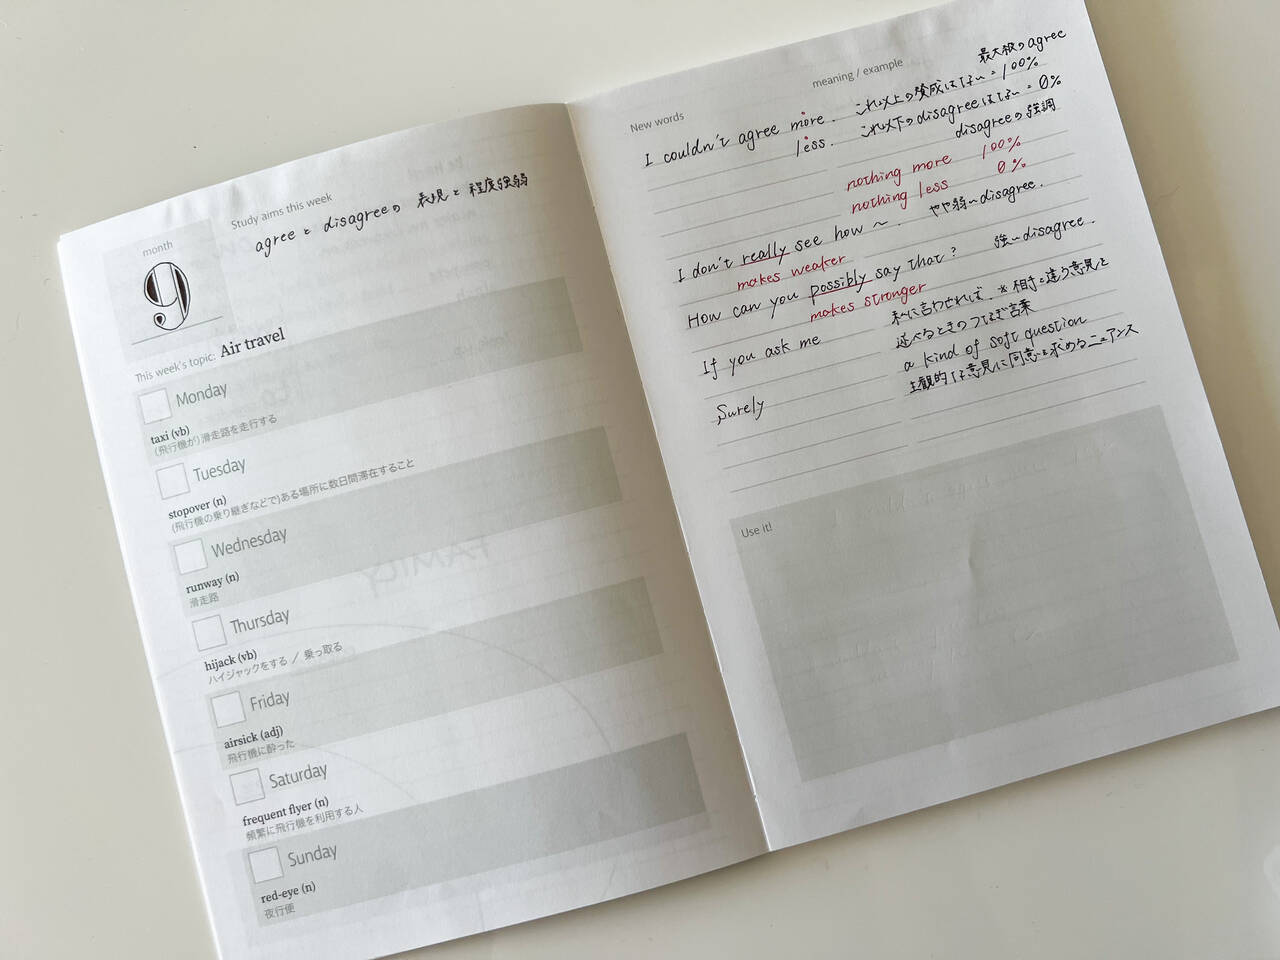 Study aims this week
agree と disagreeの 表現と程度強弱
month
9
This week's topic: Air travel
Monday
taxi (vb)
(飛行機が) 滑走路を走行する
Tuesday
stopover (n)
(飛行機の乗り継ぎなどで)ある場所に数日間滞在すること
Wednesday
runway (n)
滑走路
Thursday
hijack (vb)
ハイジャックをする / 乗っ取る
Friday
airsick (adj)
飛行機に酔った
Saturday
frequent flyer (n)
頻繁に飛行機を利用する人
Sunday
red-eye (n)
夜行便
New words
meaning / example
最大級のagree
I couldn't agree more. これ以上の賛成はない = 100%
less. これ以下のdisagreeはない = 0%
disagreeの強調
nothing more 100%
nothing less 0%
I don't really see how ~. やや弱いdisagree.
makes weaker
How can you possibly say that? 強いdisagree.
makes stronger
If you ask me 私に言わせれば. * 相手と違う意見を
述べるときのつなぎ言葉
a kind of soft question
Surely 主観的な意見に同意を求めるニュアンス
Use it!